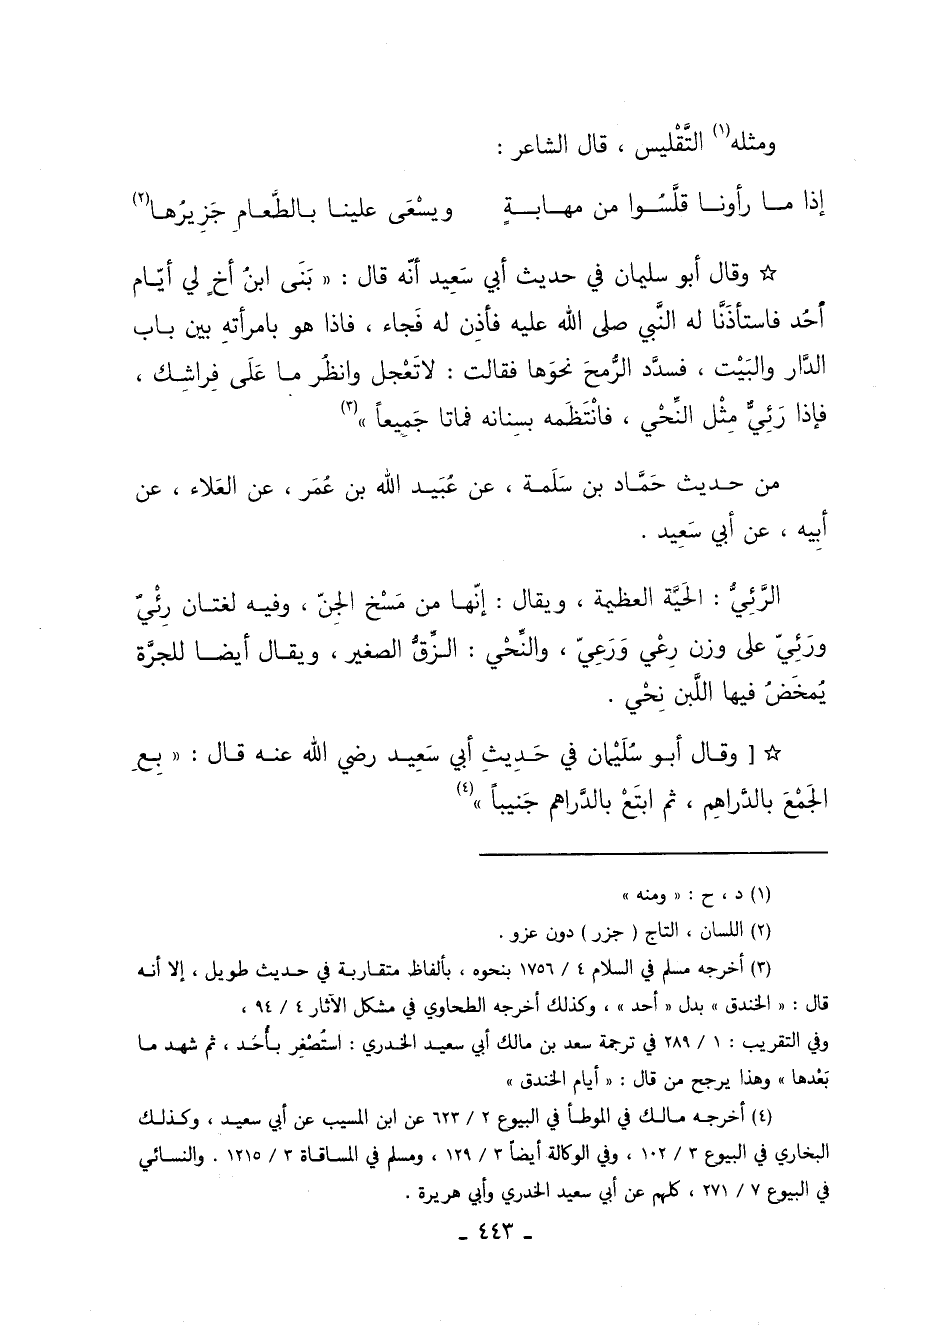 ومثله(١) التَّقْليس ، قال الشاعر :
إذا مـا رأونـا قلَّسُـوا من مهابـةٍ ويسْعَى علينـا بـالطَّعـامِ جَزِيرُهـا(٢)
☆ وقال أبو سليمان في حديث أبي سَعِيد أنّه قال : « بَنَى ابنُ أخٍ لي أيّام
أُحُد فاستأذَنَّا له النَّبي صلى الله عليه فأذِن له فَجاء ، فاذا هو بامرأتهِ بين بـاب
الدَّار والبَيْت ، فسدَّد الرُّمحَ نحوَها فقالت : لاتَعْجل وانظُر مـا عَلَى فِراشِـك ،
فإذا رَئِيٌّ مِثْل النِّحْي ، فانْتَظَمه بسِنانه فماتا جَمِيعاً »(٣)
من حديث حَمَّاد بن سَلَمة ، عن عُبَيـد الله بن عُمَر ، عن العَلاء ، عن
أبِيه ، عن أبي سَعِيد .
الرَّئِيُّ : الحَيَّة العظيمة ، ويقال : إنّهـا من مَسْخ الجنّ ، وفيـه لغتـان رِئْيٌ
ورَئِيّ على وزن رِعْي وَرَعِيّ ، والنِّحْي : الـزِّقُّ الصغير ، ويقـال أيضـا للجرَّة
يُمخَضُ فيها اللَّبن نِحْي .
☆ [ وقـال أبـو سُلَيْمان في حَـدِيثِ أبي سَعِيـد رضي الله عنـه قـال : « بِـعِ
الجَمْعَ بالدَّراهِمِ ، ثم ابتَعْ بالدَّراهم جَنِيباً »(٤)
(١) د ، ح : « ومنه »
(٢) اللسان ، التاج ( جزر ) دون عزو .
(٣) أخرجه مسلم في السلام ٤ / ١٧٥٦ بنحوه ، بألفاظ متقاربة في حديث طويل ، إلا أنـه
قال : « الخندق » بدل « أحد » ، وكذلك أخرجه الطحاوي في مشكل الآثار ٤ / ٩٤ ،
وفي التقريب : ١ / ٢٨٩ في ترجمة سعد بن مالك أبي سعيـد الخـدري : استُصْغِر بـأُحَـد ، ثم شهـد مـا
بَعْدها » وهذا يرجح من قال : « أيام الخندق »
(٤) أخرجه مالـك في الموطـأ في البيوع ٢ / ٦٢٣ عن ابن المسيب عن أبي سعيـد ، وكـذلـك
البخاري في البيوع ٣ / ١٠٢ ، وفي الوكالة أيضاً ٣ / ١٢٩ ، ومسلم في المساقـاة ٣ / ١٢١٥ . والنسـائي
في البيوع ٧ / ٢٧١ ، كلهم عن أبي سعيد الخدري وأبي هريرة .
ـ ٤٤٣ ـ